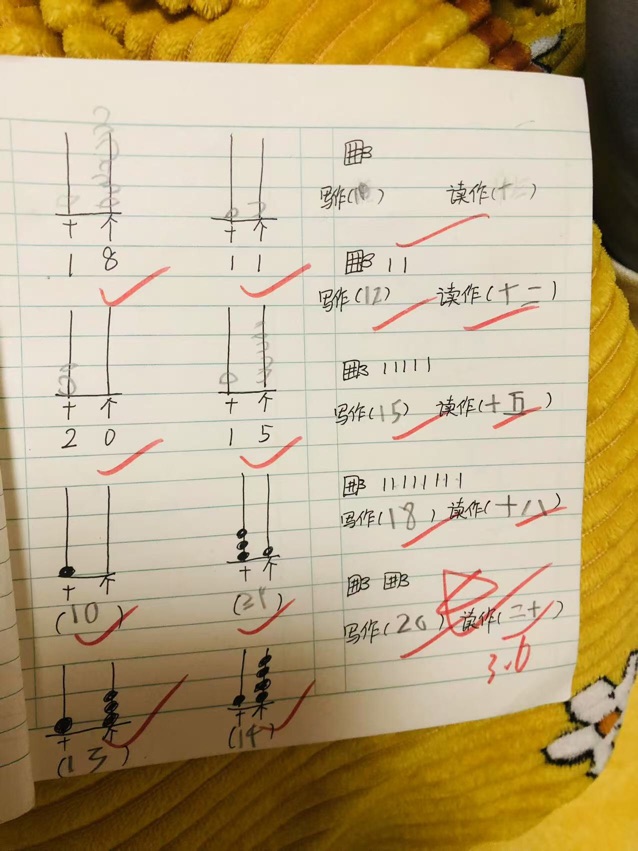 十 个 十 个
1 8 1 1
十 个 十 个
2 0 1 5
十 个 十 个
(10) (31)
十 个 十 个
(13) (14)
写作(10) 读作(十)
写作(12) 读作(十二)
写作(15) 读作(十五)
写作(18) 读作(十八)
写作(20) 读作(二十)
3.6